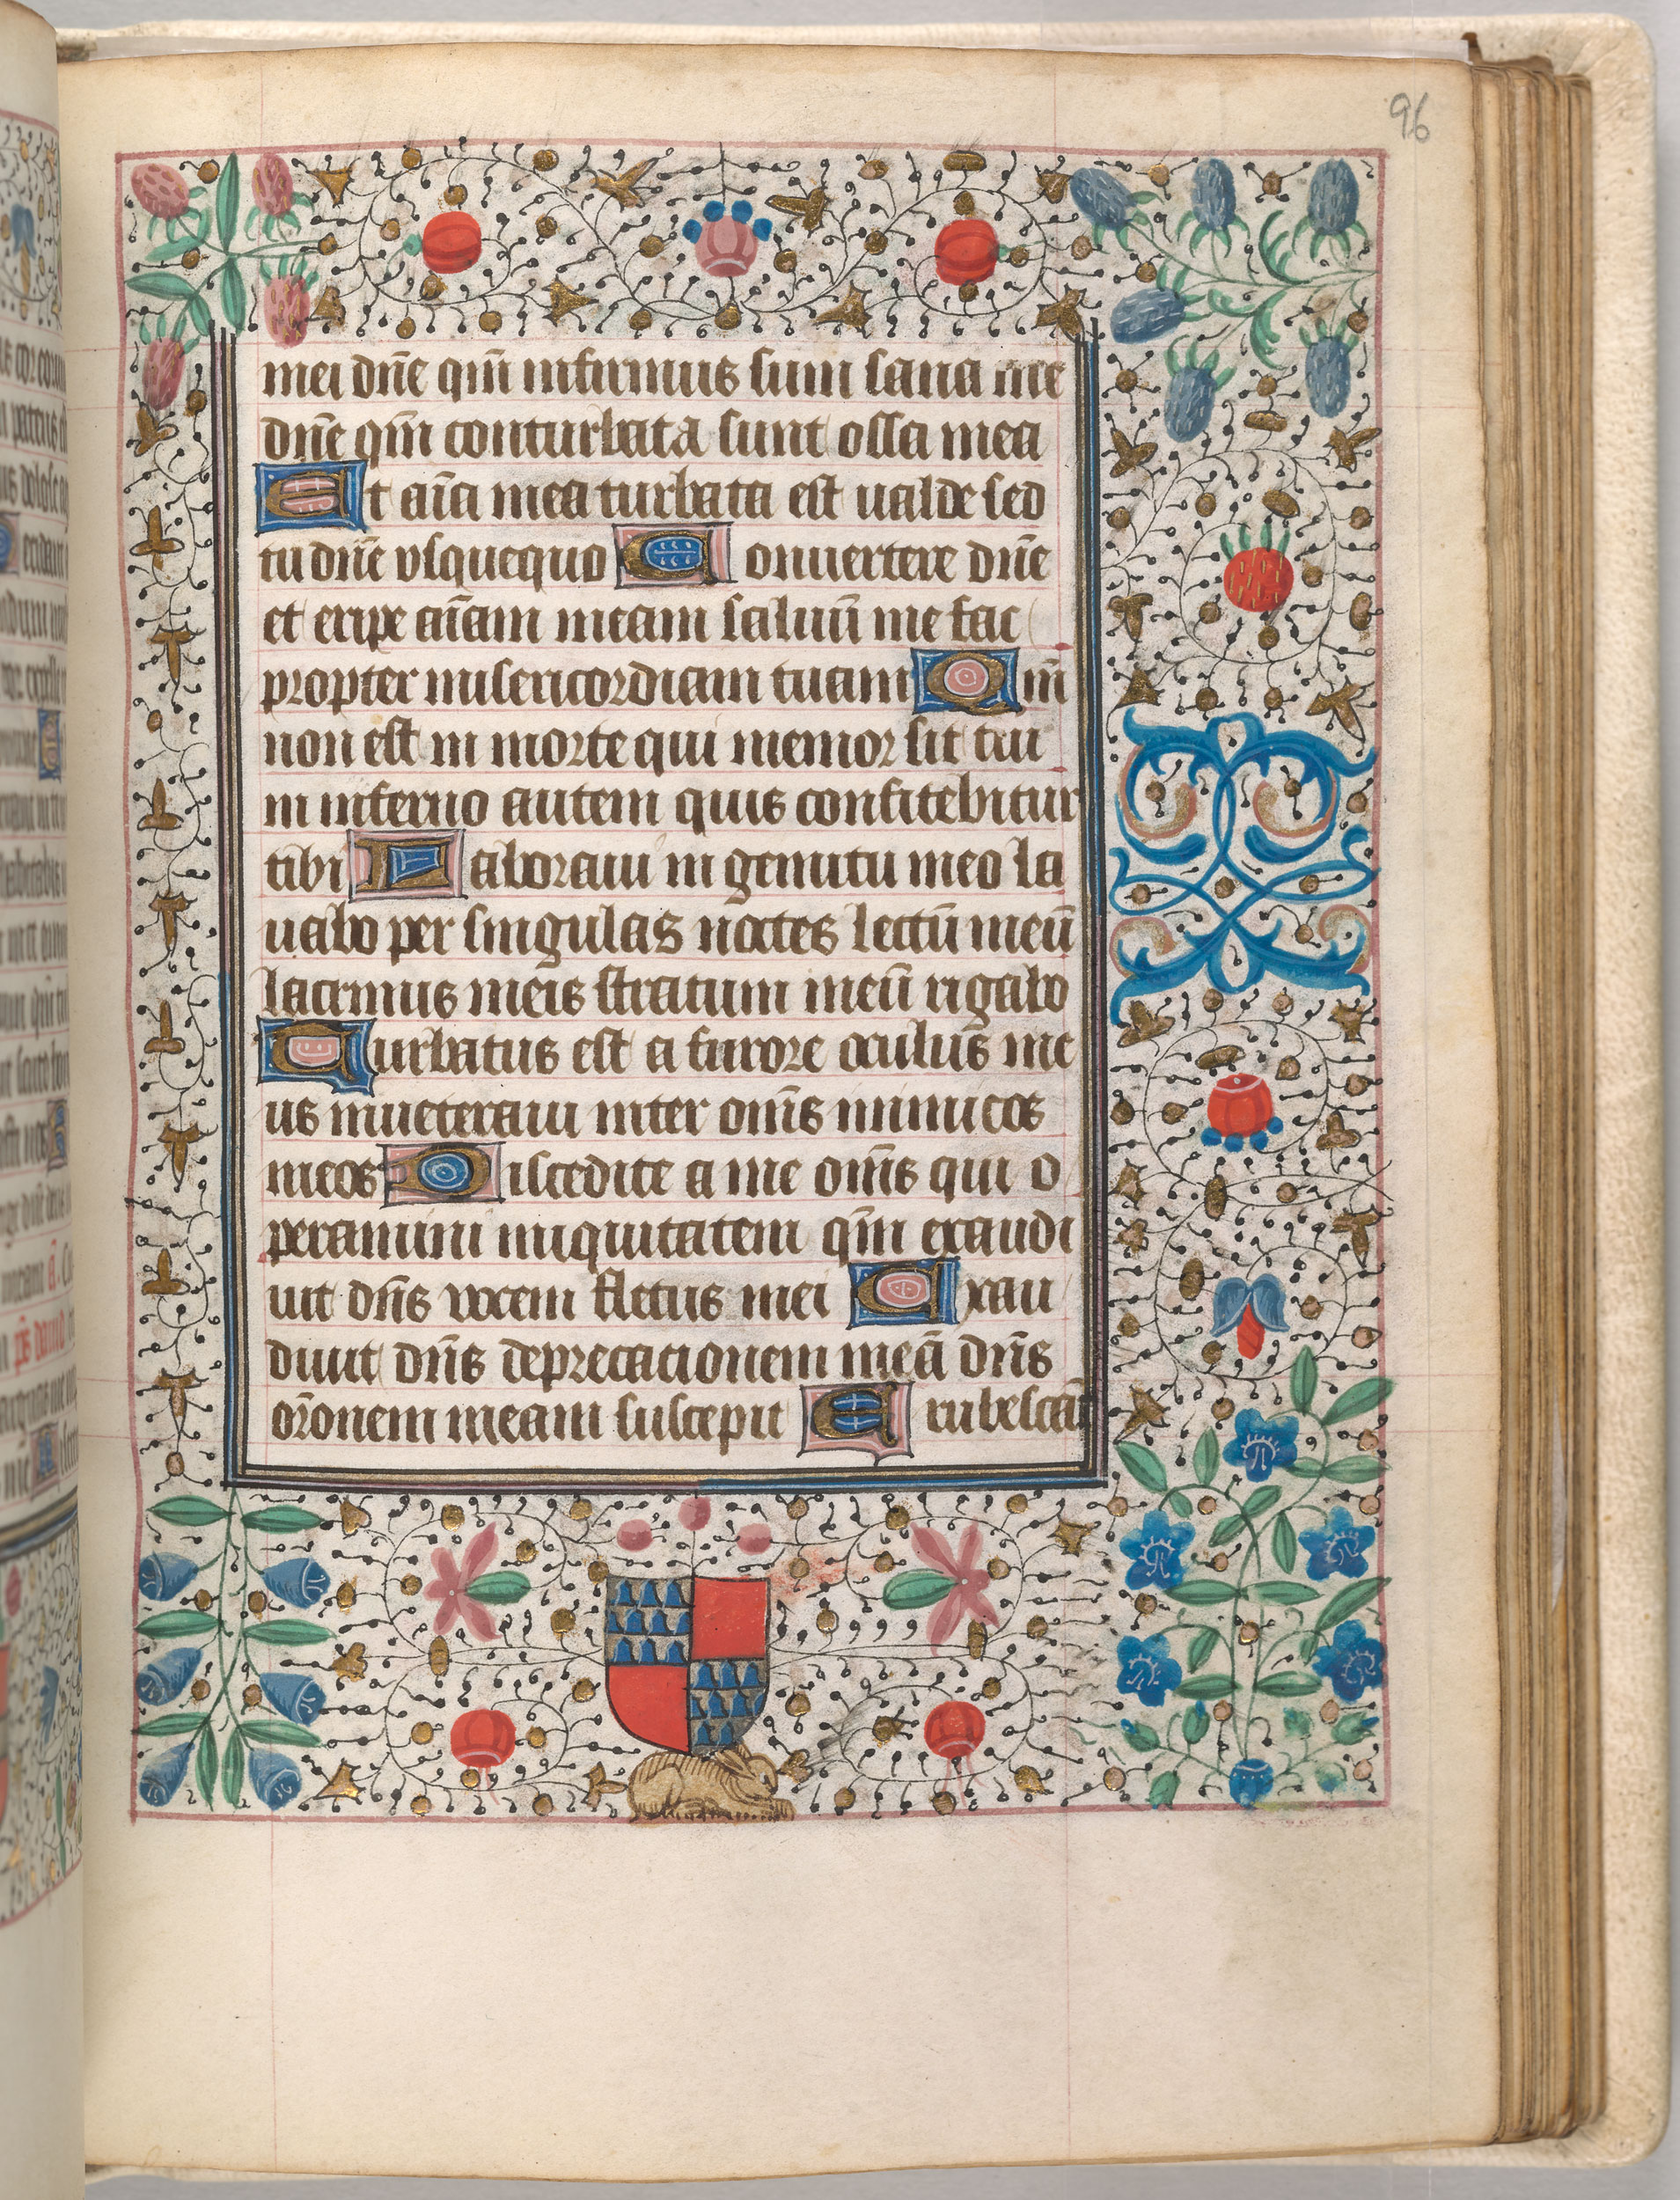 96
mei dn̄e qm̄ infirmus sum sana me
dn̄e qm̄ conturbata sunt ossa mea
Et aīa mea turbata est ualde sed
tu dn̄e vsquequo Conuertere dn̄e
et eripe aīam meam saluū me fac
propter misericordiam tuam Qm̄
non est in morte qui memor sit tui
in inferno autem quis confitebitur
tibi Laboraui in gemitu meo la
uabo per singulas noctes lectū meū
lacrimis meis stratum meū rigabo
Turbatus est a furore oculus me
us inueteraui inter om̄s inimicos
meos Discedite a me om̄s qui o
peramini iniquitatem qm̄ exaudi
uit dn̄s vocem fletus mei Exau
diuit dn̄s deprecationem meā dn̄s
or̄onem meam suscepit Erubescāt